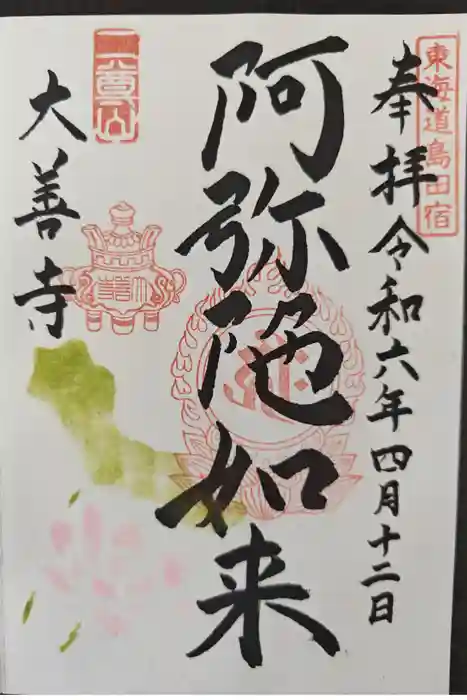 東海道島田宿
奉拝令和六年四月十二日
阿弥陀如来
大善寺